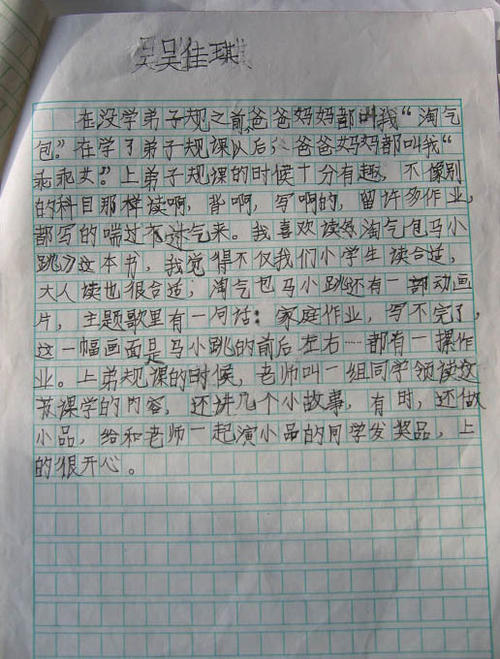 吴吴佳琪
在没学弟子规之前,爸爸妈妈都叫我“淘气
包。”在学了弟子规课以后,爸爸妈妈都叫我“
乖乖女。”上弟子规课的时候十分有趣,不像别
的科目那样读啊,背啊,写啊的,留许多作业,
都写的喘过不过气来。我喜欢读淘气包马小
跳》这本书,我觉得不仅我们小学生读合适,
大人读也很合适;淘气包马小跳还有一部动画
片,主题歌里有一句话:家庭作业,写不完了,
这一幅画面是马小跳的前后左右……都有一摞作
业。上弟规课的时候,老师叫一组同学领读这
节课学的内容,还讲几个小故事,有时,还做
小品,给和老师一起演小品的同学发奖品,上
的很开心。